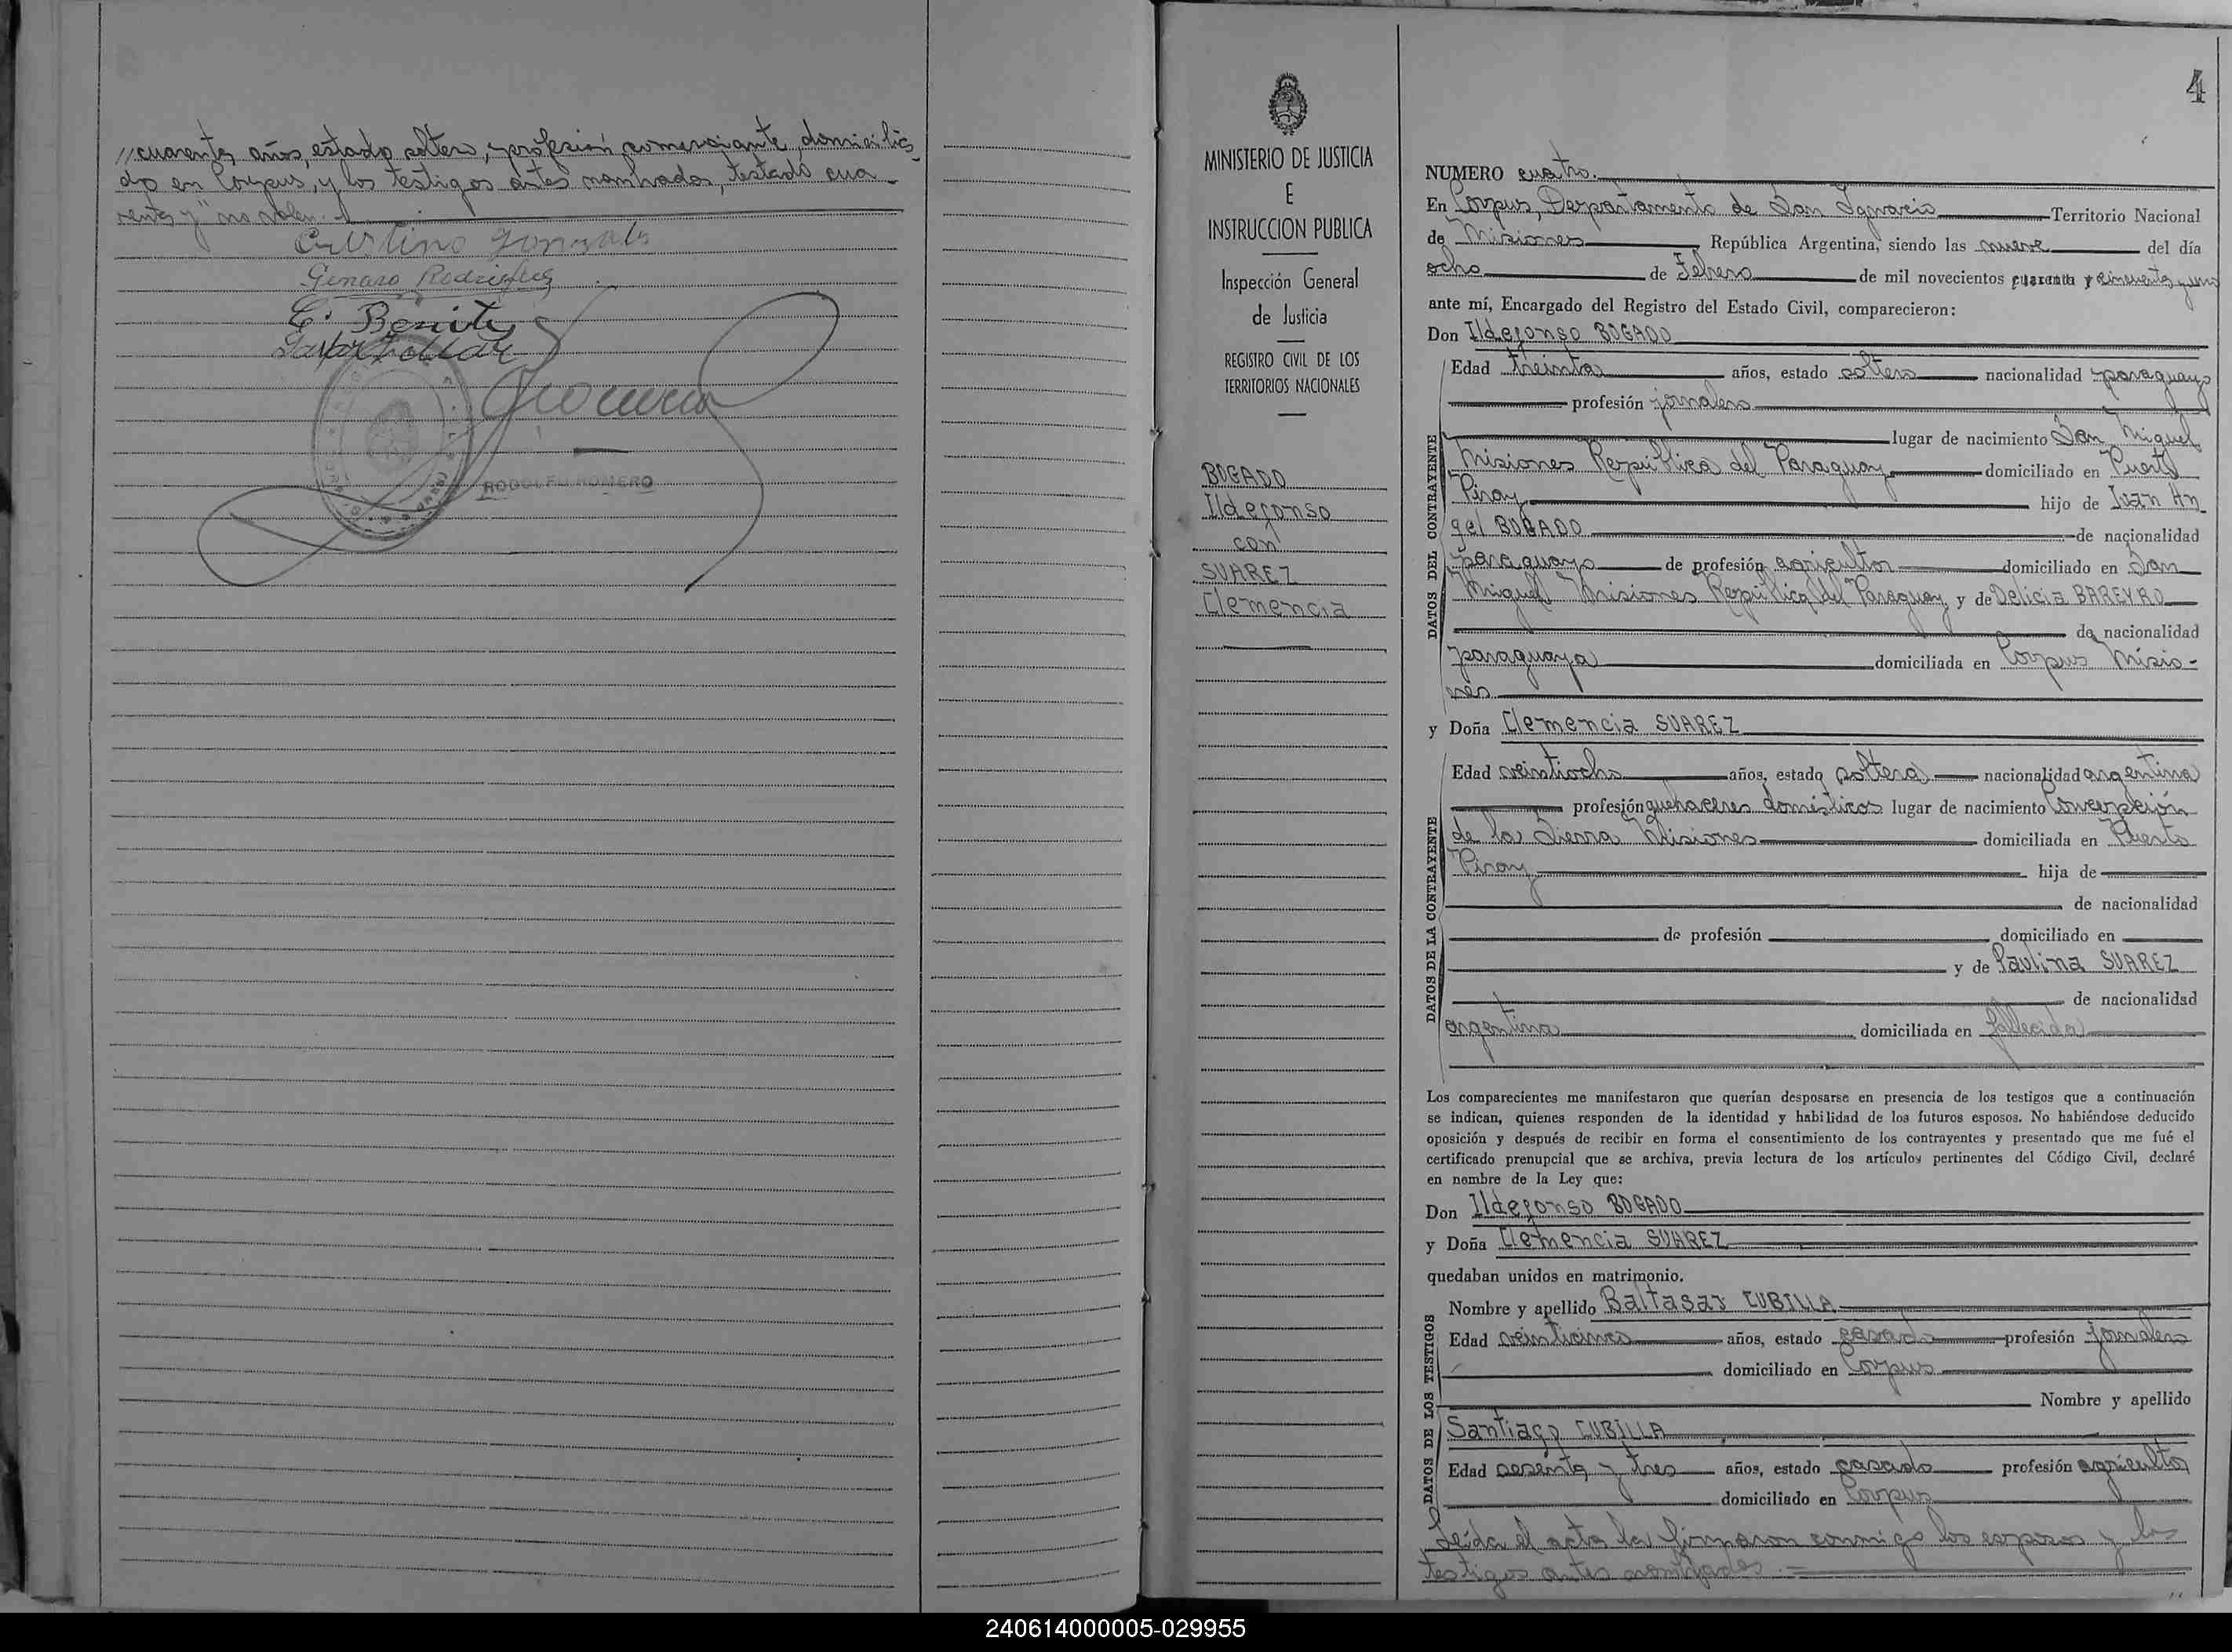 // cuarenta años, estado soltero, profesión comerciante, domicilia-
do en Corpus, y los testigos antes nombrados, testado "cua-
renta y" no valen.
Cristino Gonzalez
Genaro Rodriguez
C. Benitez
RODOLFO ROMERO
MINISTERIO DE JUSTICIA
E
INSTRUCCION PUBLICA
Inspección General
de Justicia
REGISTRO CIVIL DE LOS
TERRITORIOS NACIONALES
BOGADO
Ildefonso
con
SUAREZ
Clemencia
4
NUMERO cuatro.
En Corpus, Departamento de San Ignacio Territorio Nacional
de Misiones República Argentina, siendo las nueve del día
ocho de Febrero de mil novecientos cuarenta y cincuenta y uno
ante mí, Encargado del Registro del Estado Civil, comparecieron:
Don Ildefonso BOGADO
DATOS DEL CONTRAYENTE
Edad treinta años, estado soltero nacionalidad paraguayo
profesión jornalero
lugar de nacimiento San Miguel
Misiones República del Paraguay domiciliado en Puerto
Piray hijo de Juan An
gel BOGADO de nacionalidad
paraguayo de profesión agricultor domiciliado en San
Miguel Misiones República del Paraguay y de Delicia BAREYRO
de nacionalidad
paraguaya domiciliada en Corpus Misio-
nes
y Doña Clemencia SUAREZ
DATOS DE LA CONTRAYENTE
Edad veintiocho años, estado soltera nacionalidad argentina
profesión quehaceres domésticos lugar de nacimiento Concepción
de la Sierra Misiones domiciliada en Puerto
Piray hija de
de nacionalidad
de profesión domiciliado en
y de Paulina SUAREZ
de nacionalidad
argentina domiciliada en fallecida
Los comparecientes me manifestaron que querían desposarse en presencia de los testigos que a continuación
se indican, quienes responden de la identidad y habilidad de los futuros esposos. No habiéndose deducido
oposición y después de recibir en forma el consentimiento de los contrayentes y presentado que me fué el
certificado prenupcial que se archiva, previa lectura de los artículos pertinentes del Código Civil, declaré
en nombre de la Ley que:
Don Ildefonso BOGADO
y Doña Clemencia SUAREZ
quedaban unidos en matrimonio.
DATOS DE LOS TESTIGOS
Nombre y apellido Baltasar CUBILLA
Edad veinticinco años, estado casado profesión jornalero
domiciliado en Corpus
Nombre y apellido
Santiago CUBILLA
Edad sesenta y tres años, estado casado profesión agricultor
domiciliado en Corpus
Leída el acta la firmaron conmigo los esposos y los
testigos antes nombrados.
240614000005-029955